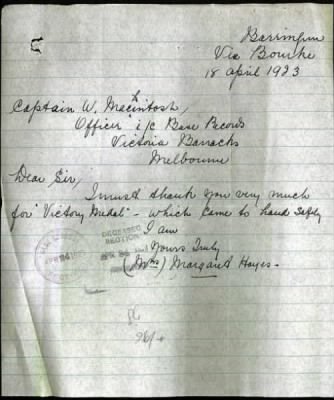 Barringun
Via Bourke
18 April 1923
Captain W. Macintosh,
Officer i/c Base Records
Victoria Barracks
Melbourne
Dear Sir,
I must thank you very much
for "Victory Medal" - which came to hand safely
I am
Yours Truly
(Mrs) Margaret Hayes -
DECEASED
SECTION